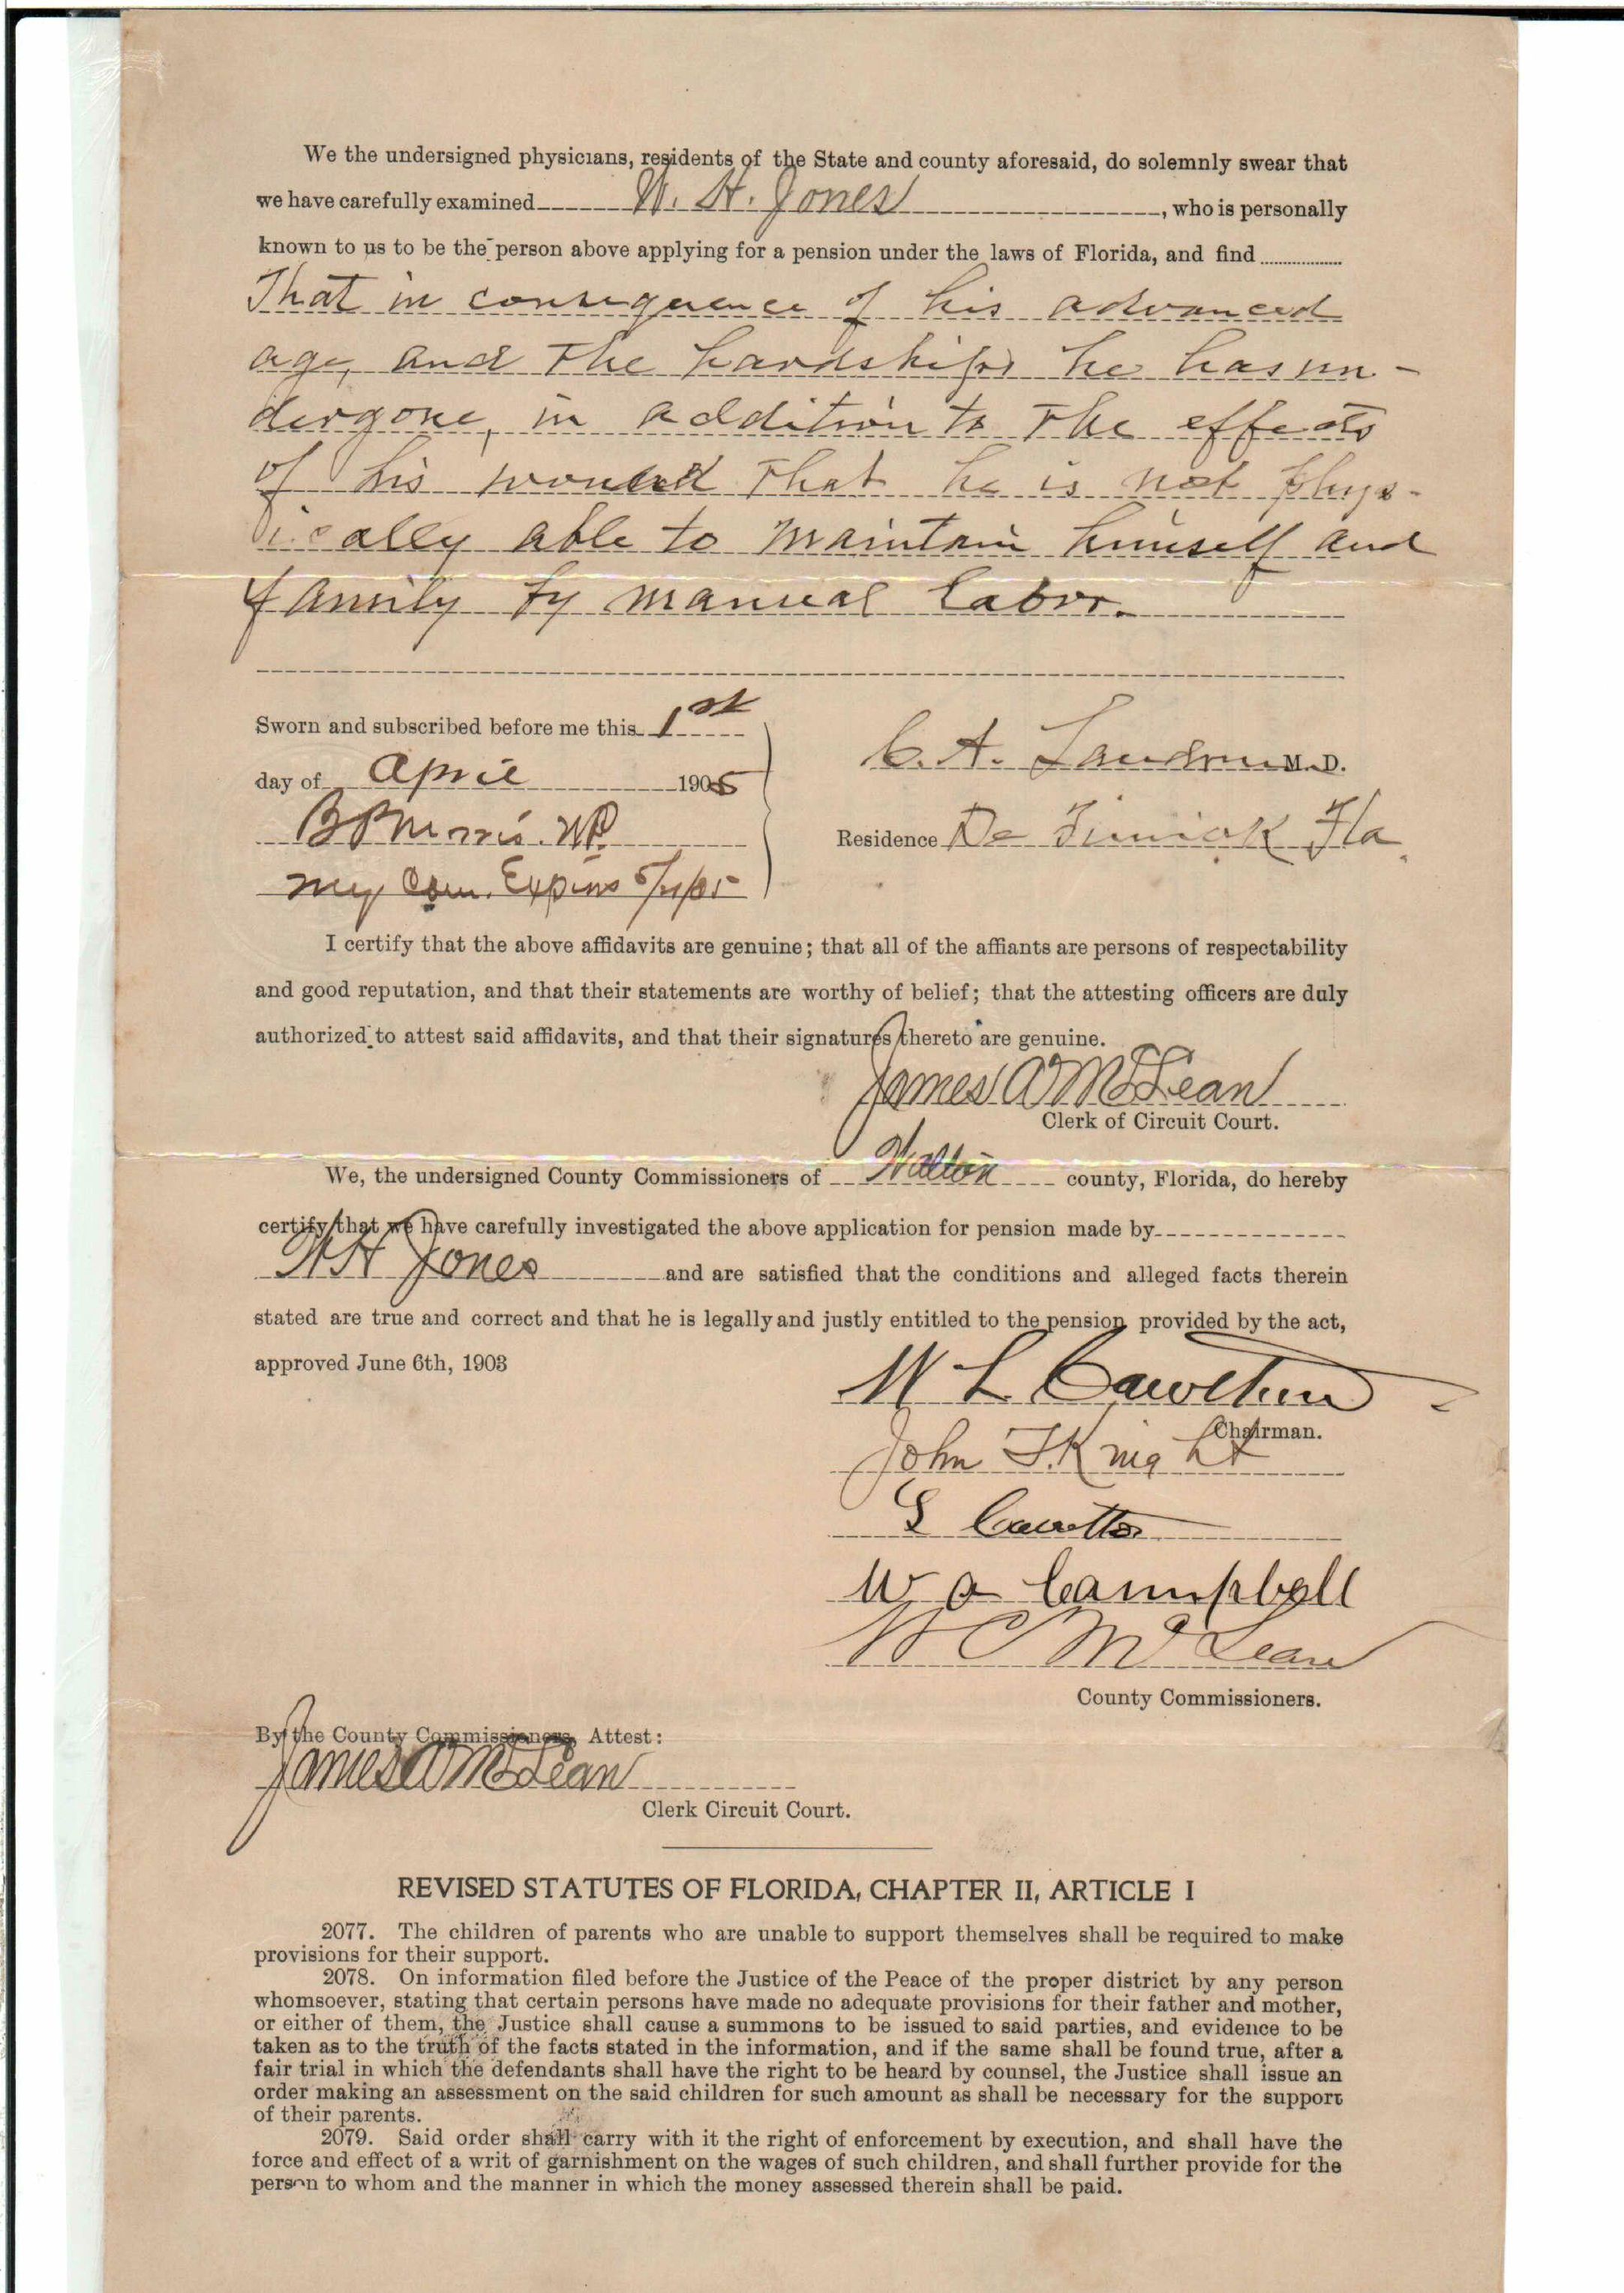 We the undersigned physicians, residents of the State and county aforesaid, do solemnly swear that
we have carefully examined W. H. Jones, who is personally
known to us to be the person above applying for a pension under the laws of Florida, and find
That in consequence of his advanced
age, and the hardships he has un-
dergone, in addition to the effects
of his wound that he is not phys-
ically able to maintain himself and
family by manual labor.
Sworn and subscribed before me this 1st
day of April 1905
My Com. Expires
C. A. Landrum M. D.
Residence De Funiak Fla
I certify that the above affidavits are genuine; that all of the affiants are persons of respectability
and good reputation, and that their statements are worthy of belief; that the attesting officers are duly
authorized to attest said affidavits, and that their signatures thereto are genuine.
James A McLean
Clerk of Circuit Court.
We, the undersigned County Commissioners of Walton county, Florida, do hereby
certify that we have carefully investigated the above application for pension made by
W H Jones and are satisfied that the conditions and alleged facts therein
stated are true and correct and that he is legally and justly entitled to the pension provided by the act,
approved June 6th, 1903
W L Cawthon
Chairman.
John T. Knight
W A Campbell
W C McLean
County Commissioners.
By the County Commissioners, Attest:
James A McLean
Clerk Circuit Court.
REVISED STATUTES OF FLORIDA, CHAPTER II, ARTICLE I
2077. The children of parents who are unable to support themselves shall be required to make
provisions for their support.
2078. On information filed before the Justice of the Peace of the proper district by any person
whomsoever, stating that certain persons have made no adequate provisions for their father and mother,
or either of them, the Justice shall cause a summons to be issued to said parties, and evidence to be
taken as to the truth of the facts stated in the information, and if the same shall be found true, after a
fair trial in which the defendants shall have the right to be heard by counsel, the Justice shall issue an
order making an assessment on the said children for such amount as shall be necessary for the support
of their parents.
2079. Said order shall carry with it the right of enforcement by execution, and shall have the
force and effect of a writ of garnishment on the wages of such children, and shall further provide for the
person to whom and the manner in which the money assessed therein shall be paid.